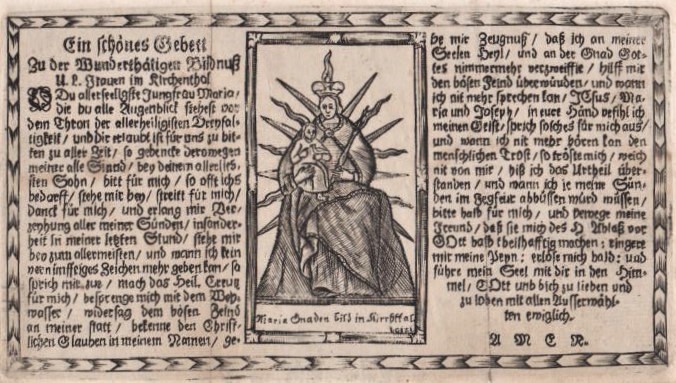 Ein schönes Gebett
Zu der Wunderthätigen Bildnuß
U. L. Frauen im Kirchenthal
O Du allerseeligste Jungfrau Maria/
die du alle Augenblick stehest vor
dem Thron der allerheiligisten Dreyfal-
tigkeit / und dir erlaubt ist für uns zu bit-
ten zu aller Zeit / so gedencke derowegen
meiner alle Stund / bey deinem allerlieb-
sten Sohn / bitt für mich / so offt ichs
bedarff / stehe mir bey / streitt für mich /
danck für mich / und erlang mir Ver-
zeyhung aller meiner Sünden / insonder-
heit in meiner letzten Stund / stehe mir
bey zum allermeisten / und wann ich kein
Zeichen mehr geben kan / so
sprich mir zu / mach das Heil. Creutz
für mich / besprenge mich mit dem Weyh-
wasser / widersag dem bösen Feind
an meiner statt / bekenne den Christ-
lichen Glauben in meinem Namen / ge-
Maria Gnaden bild in Kirchtal
be mir Zeugnuß / daß ich an meiner
Seelen Heyl / und an der Gnad Got-
tes nimmermehr verzweiffle / hilff mir
den bösen Feind überwünden / und wann
ich nit mehr sprechen kan / JEsus / Ma-
ria und Joseph / in eure Händ befihl ich
meinen Geist / sprich solches für mich aus /
und wann ich nit mehr hören kan den
menschlichen Trost / so tröste mich / weich
nit von mir / biß ich das Urtheil über-
standen / und wann ich je meine Sün-
den im Fegfeur abbüssen wurd müssen /
bitte bald für mich / und bewege meine
Freund / daß sie mich des H. Ablaß vor
GOtt bald theilhafftig machen : ringere
mir meine Peyn : erlöse mich bald : und
führe mein Seel mit dir in den Him-
mel / GOtt und dich zu lieben und
zu loben mit allen Ausserwähl-
ten ewiglich.
A M E N.